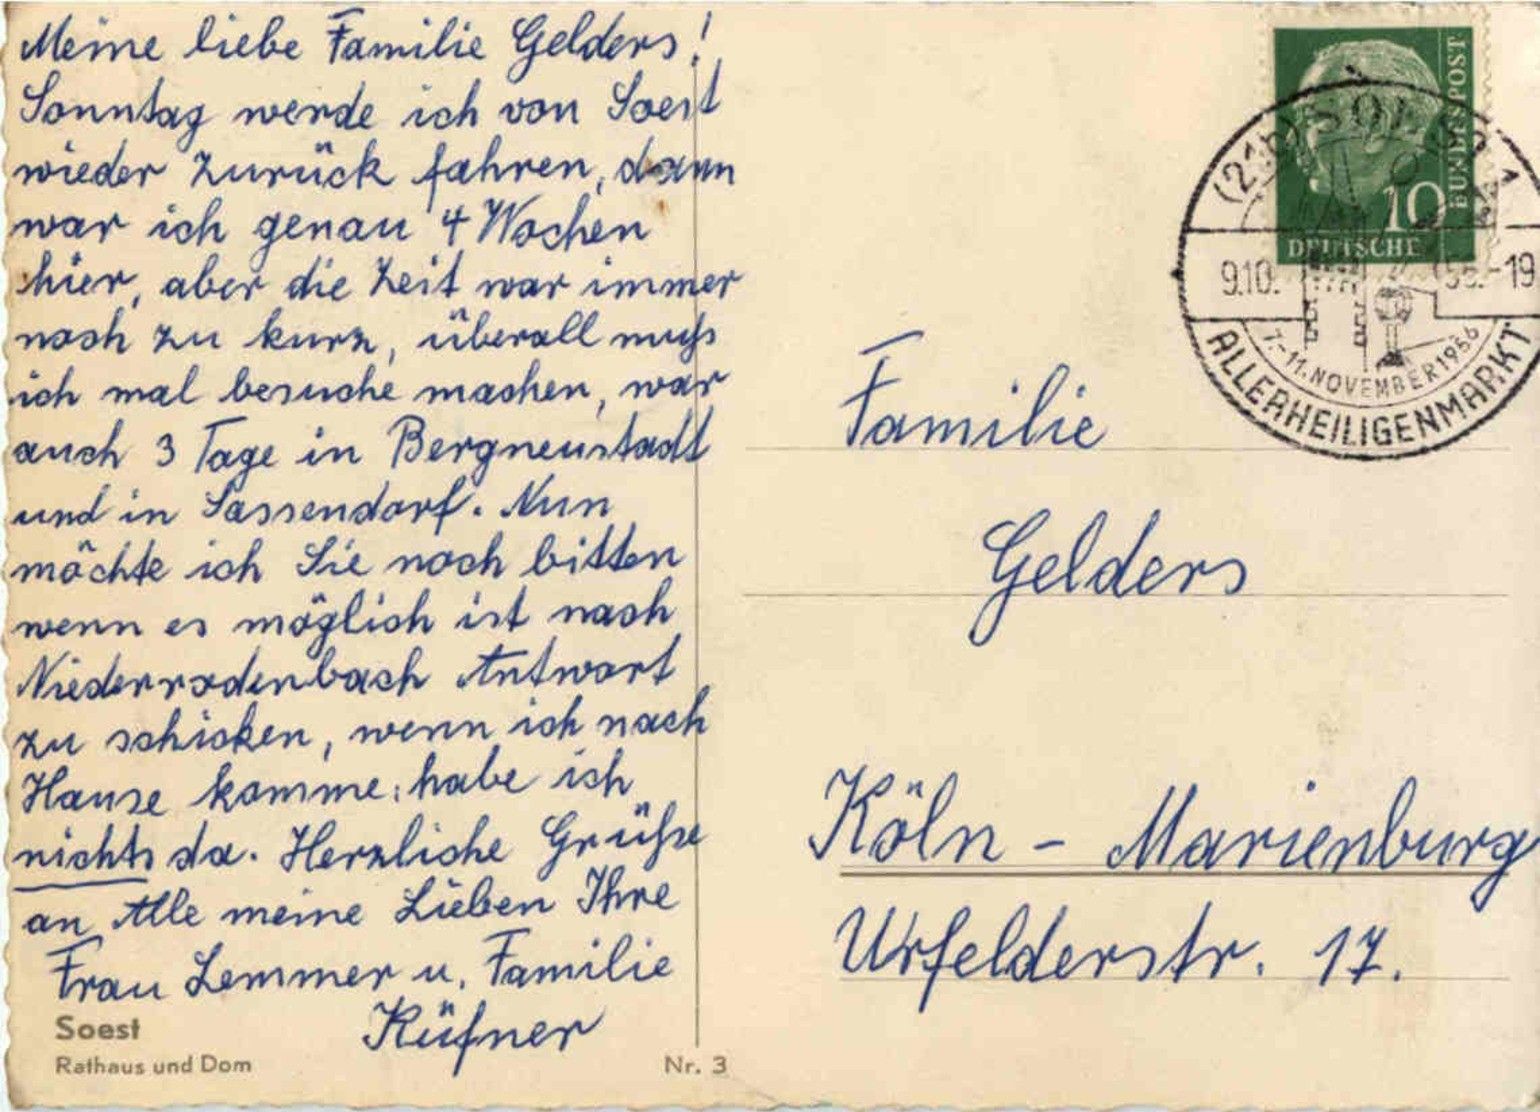 Meine liebe Familie Gelders!
Sonntag werde ich von Soest
wieder zurück fahren, dann
war ich genau 4 Wochen
hier, aber die Zeit war immer
noch zu kurz, überall muß
ich mal besuche machen, war
auch 3 Tage in Bergneustadt
und in Sassendorf. Nun
möchte ich Sie noch bitten
wenn es möglich ist nach
Niederrodenbach Antwort
zu schicken, wenn ich nach
Hause komme habe ich
nichts da. Herzliche Grüße
an Alle meine Lieben Ihre
Frau Lemmer u. Familie
Küfner
Soest
Rathaus und Dom
Nr. 3
DEUTSCHE
BUNDESPOST
10
(21b) SOEST
9.10. 56.-19
7.-11. NOVEMBER 1956
ALLERHEILIGENMARKT
Familie
Gelders
Köln - Marienburg
Urfelderstr. 17.